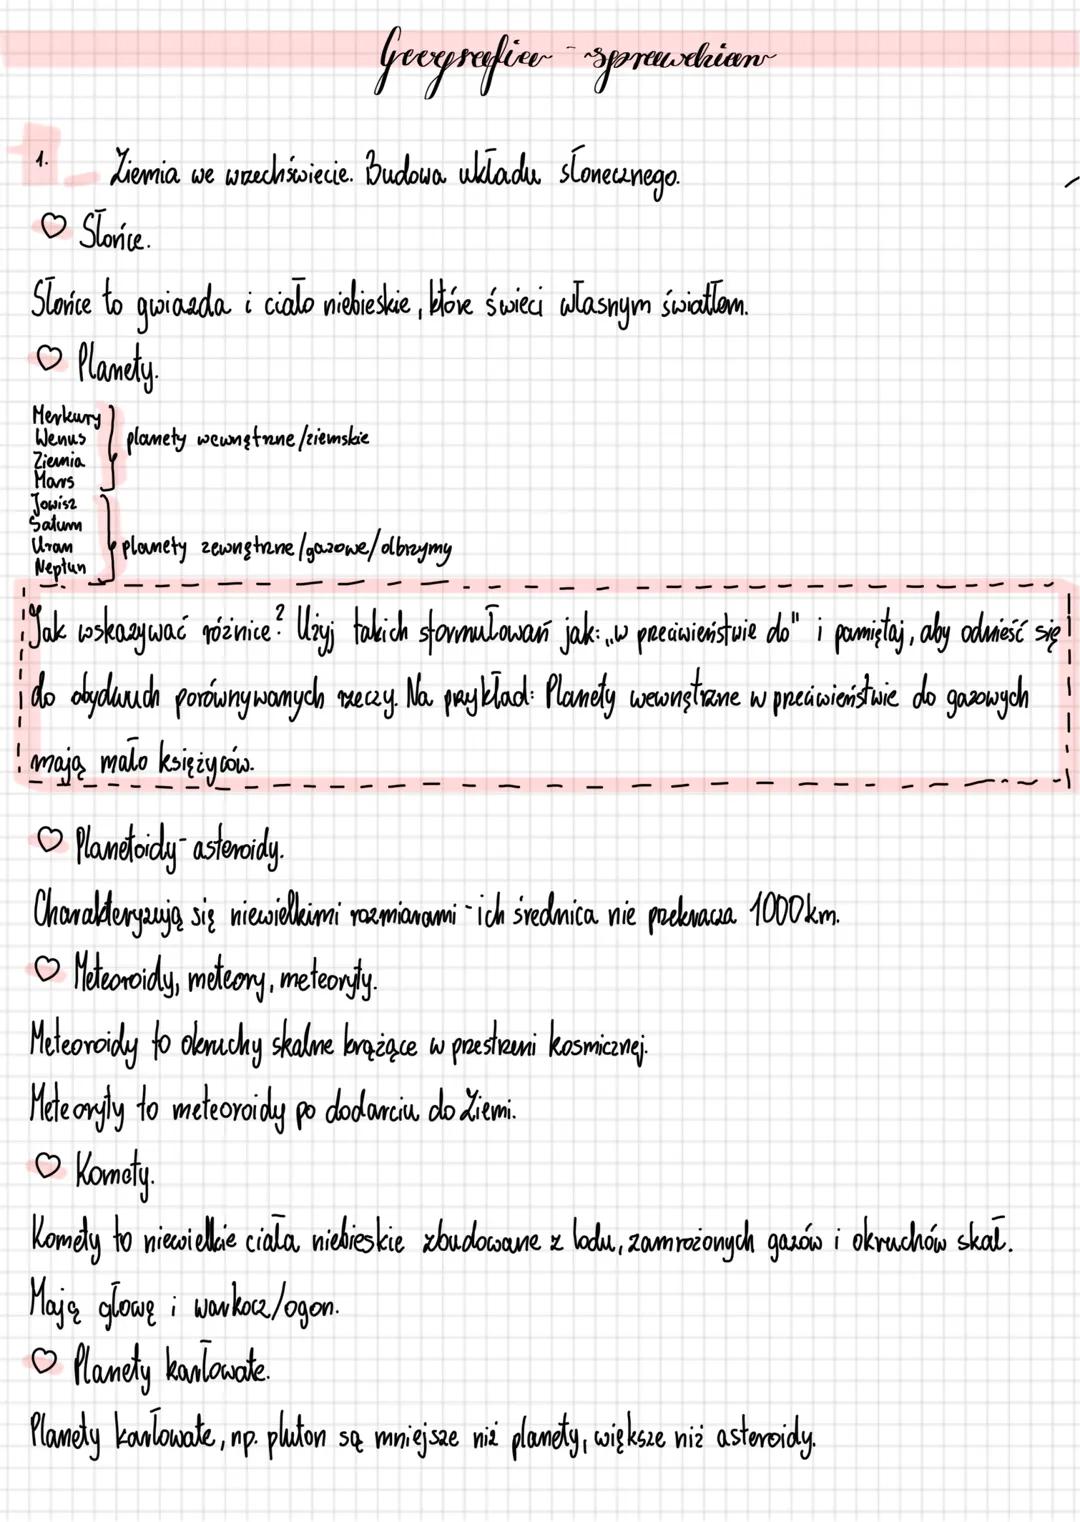 Geografia - sprawdzian
1. Ziemia we wrzechświecie. Budowa układu słonecznego.
♡ Słońce.
Słońce to gwiazda i ciało niebieskie, które świeci własnym światłem.
♡ Planety.
Merkury
Wenus
Ziemia
Mars
planety wewnętrzne/ziemskie
Jowisz
Saturn
Uran
Neptun
planety zewnętrzne/gazowe/olbrzymy
Jak wskazywać różnice? Użyj takich sformułowań jak: „w przeciwieństwie do" i pamiętaj, aby odnieść się
do obydwuch porównywanych rzeczy. Na przykład: Planety wewnętrzne w przeciwieństwie do gazowych
mają mało księżyców.
♡ Planetoidy - asteroidy.
Charakteryzują się niewielkimi rozmiarami - ich średnica nie przekracza 1000km.
♡ Meteoroidy, meteory, meteoryty.
Meteoroidy to okruchy skalne krążące w przestrzeni kosmicznej.
Meteoryty to meteoroidy po dodarciu do Ziemi.
♡ Komety.
Komety to niewielkie ciała niebieskie zbudowane z lodu, zamrożonych gazów i okruchów skał.
Mają głowę i warkocz/ogon.
♡ Planety karłowate.
Planety karłowate, np. pluton są mniejsze niż planety, większe niż asteroidy.